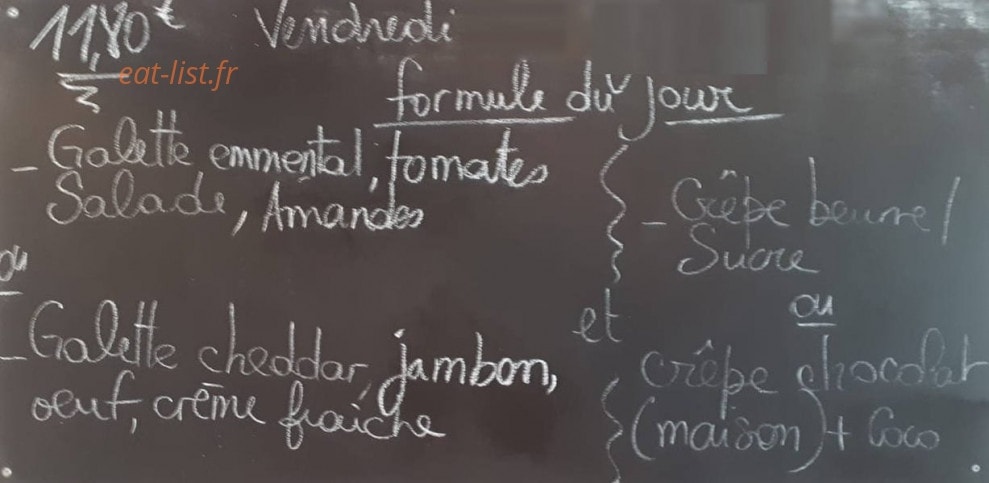 11,80€ Vendredi
eat-list.fr
formule du jour
- Galette emmental, tomates
Salade, Amandes
ou
- Galette cheddar, jambon,
oeuf, crème fraiche
et
- Crêpe beurre/
Sucre
ou
crêpe chocolat
(maison) + Coco